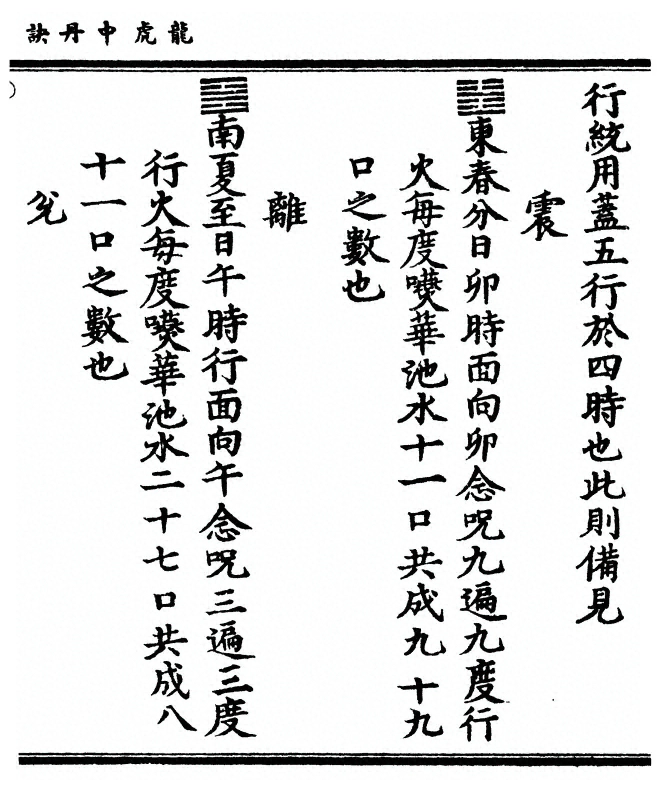 龍虎中丹訣
行統用蓋五行於四時也此則備見
震
䷲東春分日卯時面向卯念呪九遍九度行
火每度嚥華池水十一口共成九十九
口之數也
離
䷝南夏至日午時行面向午念呪三遍三度
行火每度嚥華池水二十七口共成八
十一口之數也
兊